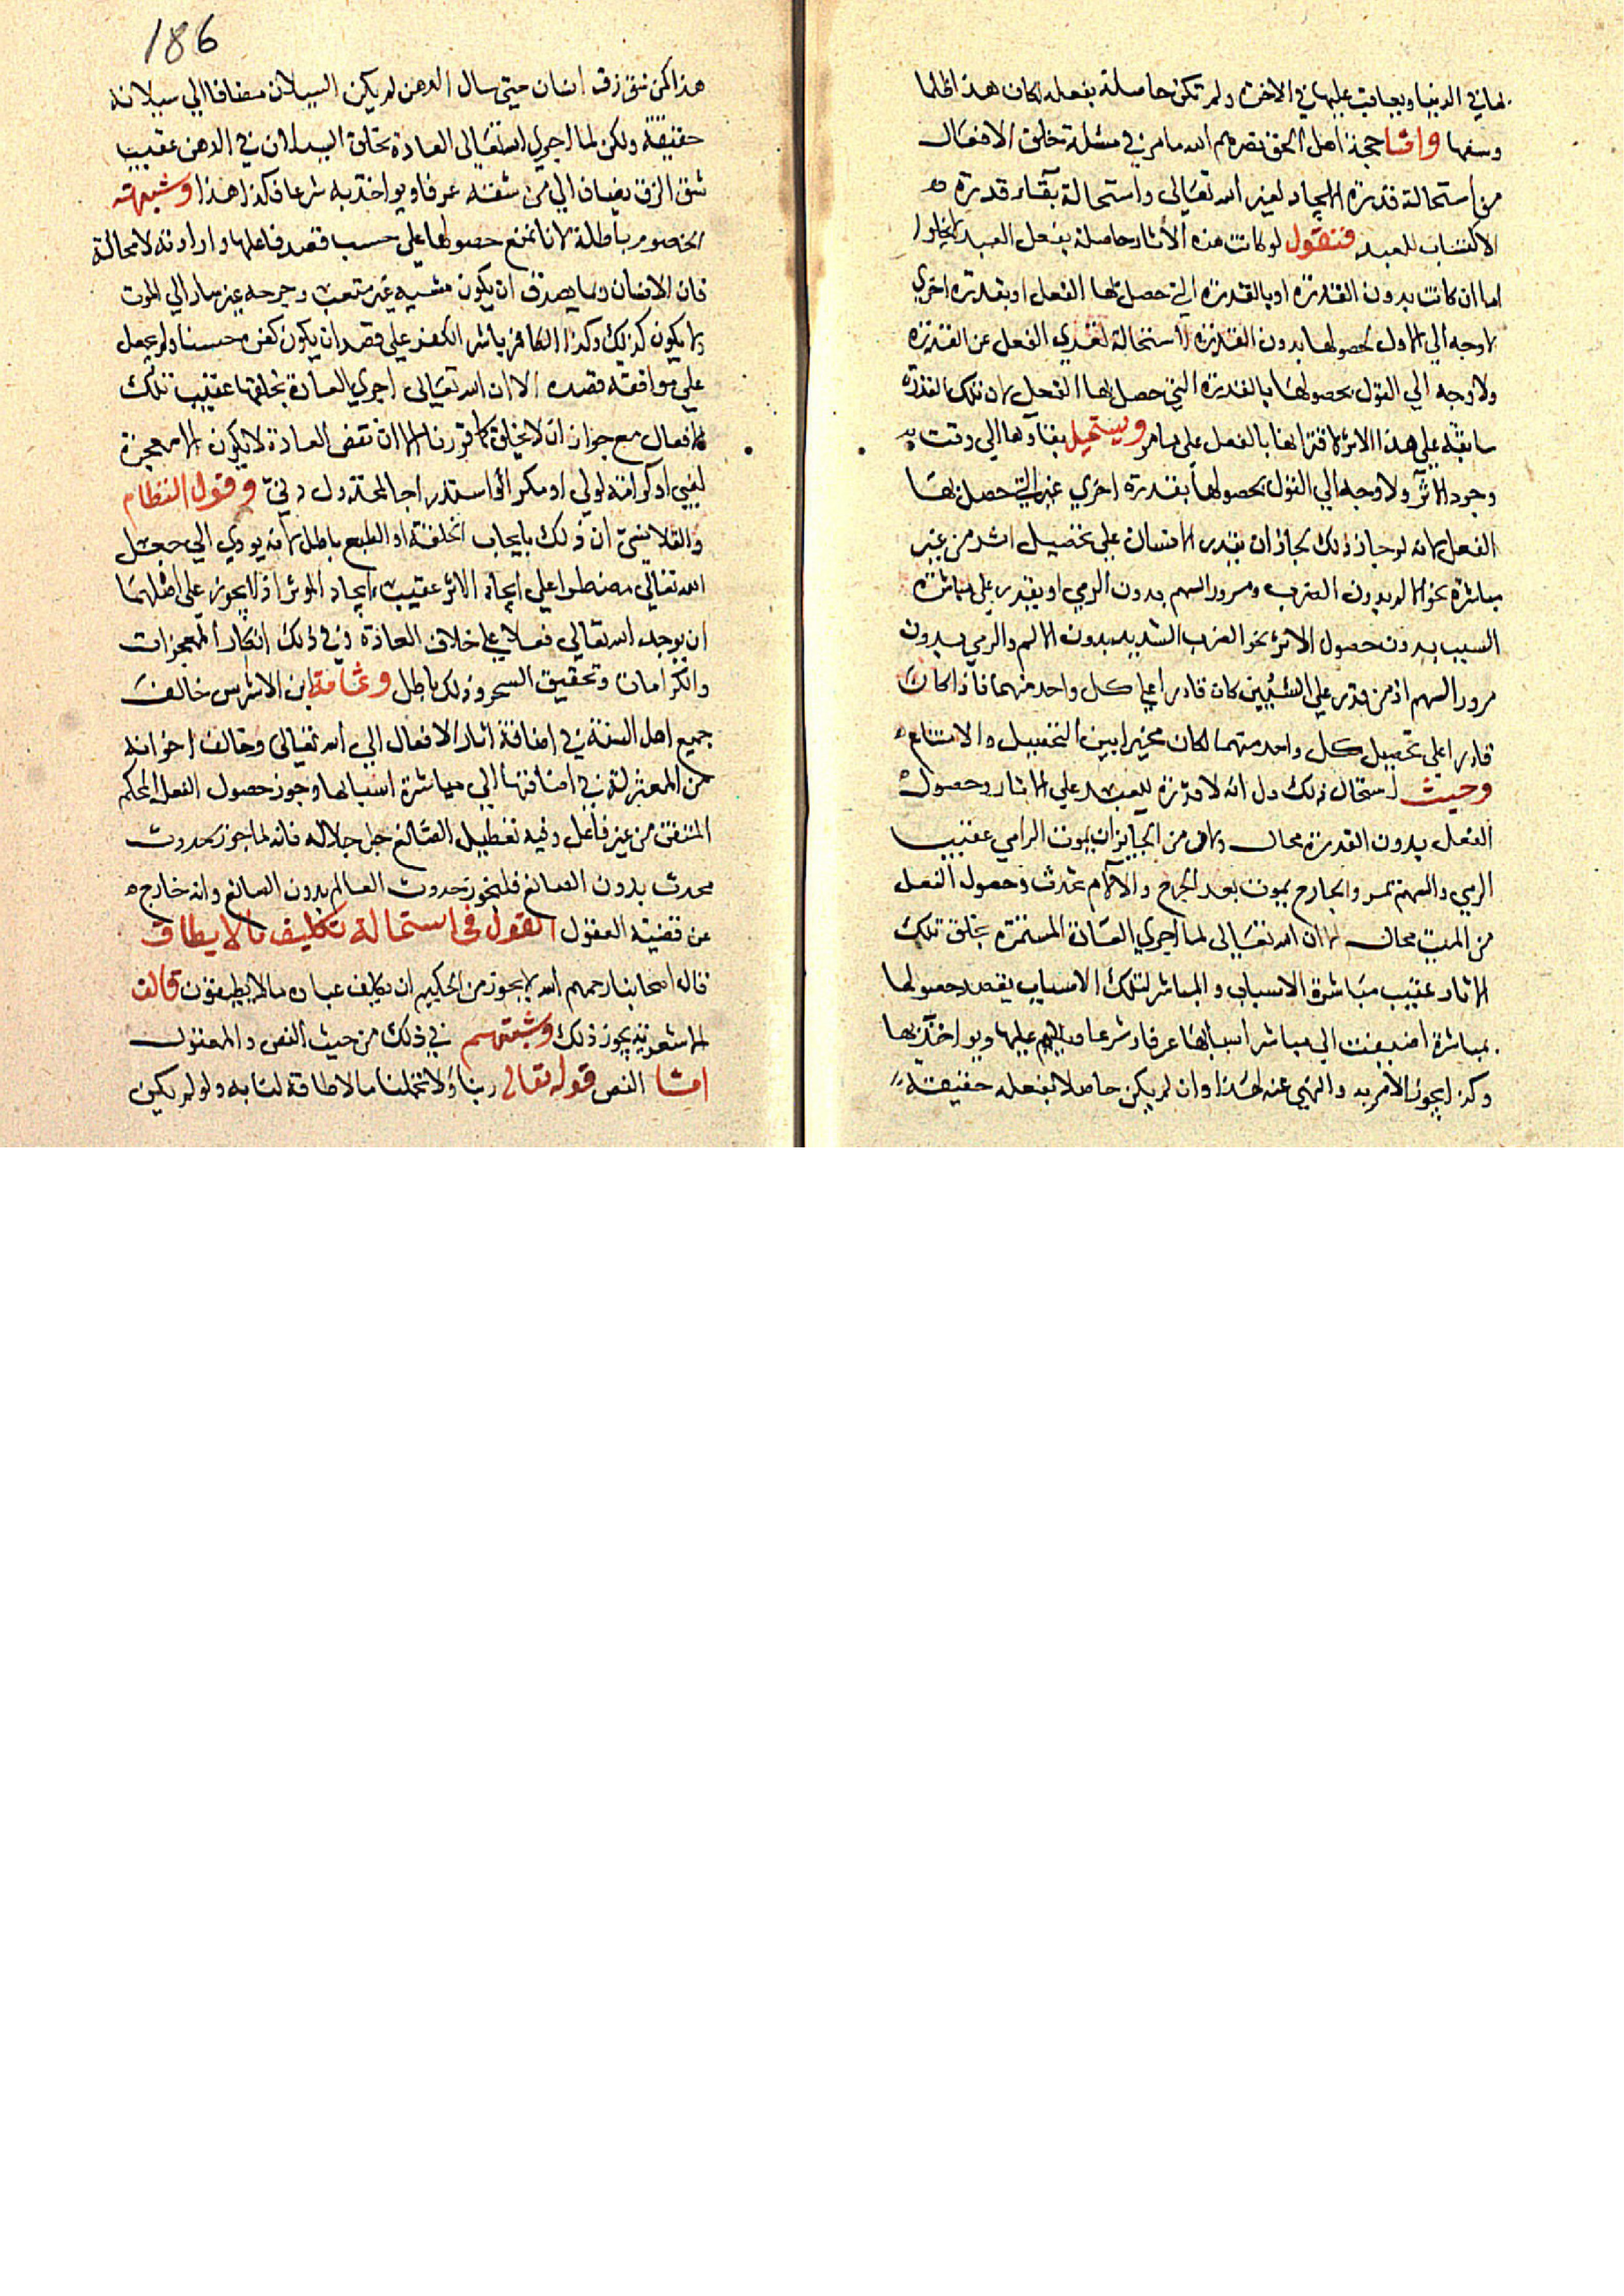 بها في الدنيا ويعاقب عليها في الاخرة ولم تكن حاصلة بفعله لكان هذا ظلما
وسفها واما حجة اهل الحق نصرهم الله ما مر في مسئلة خلق الافعال
من استحالة قدرة الايجاد لغير الله تعالى واستحالة بقاء قدرة
الاكتساب للعبد فنقول لو كانت هذه الأثار حاصلة بفعل العبد لايخلوا
اما ان كانت بدون القدرة او بالقدرة التي حصل بها الفعل او بقدرة اخري
لا وجه الي الاول لحصولها بدون القدرة لاستحالة تعدي الفعل عن القدرة
ولا وجه الي القول بحصولها بالقدرة التي حصل بها الفعل لان تلك القدرة
سابقة علي هذا الاثر لاقترانها بالفعل علي ما مر ويستحيل بقاؤها الي وقت
وجود الاثر ولا وجه الي القول بحصولها بقدرة اخري غير التي حصل بها
الفعل لانه لو جاز ذلك لجاز ان يقدر الانسان علي تحصيل اثر من غير
مباشرة نحو الالم بدون الضرب ومرور السهم بدون الرمي او يقدر علي مباشرة
السبب بدون حصول الاثر نحو الضرب الشديد بدون الالم والرمي بدون
مرور السهم اذ من قدر علي الشيئين كان قادرا علي كل واحد منهما فاذا كان
قادرا علي تحصيل كل واحد منهما لكان مخيرا بين التحصيل والامتناع
وحيث استحال ذلك دل انه لا قدرة للعبد علي الاثار وحصول
الفعل بدون القدرة محال ولان من الجايز ان يموت الرامي عقيب
الرمي والسهم يمر والجارح يموت بعد الجرح والآلام تحدث وحصول الفعل
من الميت محال الا ان الله تعالى لما اجري العادة المستمرة بخلق تلك
الاثار عقيب مباشرة الاسباب والمباشر لتلك الاسباب يقصد حصولها
بمباشرة اضيفت الي مباشر اسبابها عرفا وشرعا عليها ويواخذ بها
وكذا يجوز الأمر به والنهي عنه لهذا وان لم يكن حاصلا بفعله حقيقة
186
هذا كمن شق زق انسان حتى سال الدهن لم يكن السيلان مضافا الي سيلانه
حقيقة ولكن لما اجري الله تعالى العادة بخلق السيلان في الدهن عقيب
شق الزق يضاف الي من شقه عرفا ويواخذ به شرعا فكذا هذا وشبهة
الخصوم باطلة لانا نمنع حصولها علي حسب قصد فاعلها وارادته لا محالة
فان الانسان ان يكون مشيه غير متعب وجرحه غير سار الي الموت
ولا يكون كذلك وكذا الكافر يباشر الكفر علي قصد ان يكون كفره حسنا ولم يحصل
علي موافقة قصده الا ان الله تعالى اجري العادة بخلقها عقيب تلك
الافعال مع جواز ان لا يخلق كما قررنا الا ان نقض العادة لا يكون الا معجزة
لنبي او كرامة لولي او مكرا او استدراجا
وقول النظام
والقلانسي ان ذلك بايجاب الخلقة او الطبع باطل لانه يودي الي جعل
الله تعالي مضطرا علي ايجاد الاثر عقيب ايجاد الموثر اذ لا يجوز علي اصلهما
ان يوجد الله تعالي فعلا علي خلاف العادة وفي ذلك انكار المعجزات
والكرامات وتحقيق السحر وذلك باطل وثمامة ابن الاشرس خالف
جميع اهل السنة في اضافة اثار الافعال الي الله تعالى وخالف اخوانه
من المعتزلة في اضافتها الي مباشرة اسبابها وجوز حصول الفعل المحكم
المتقن من غير فاعل وفيه تعطيل الصانع جل جلاله فانه لما جوز حدوث
محدث بدون الصانع فليجوز حدوث العالم بدون الصانع وانه خارج
عن قضية العقول القول في استحالة تكليف ما لا يطاق
قال اصحابنا رحمهم الله لا يجوز من الحكيم ان يكلف عباده ما لا يطيقون قالت
الاشعرية يجوز ذلك وشبهتهم في ذلك من حيث النص والمعقول
اما النص قوله تعالى ربنا ولا تحملنا ما لا طاقة لنا به ولو لم يكن